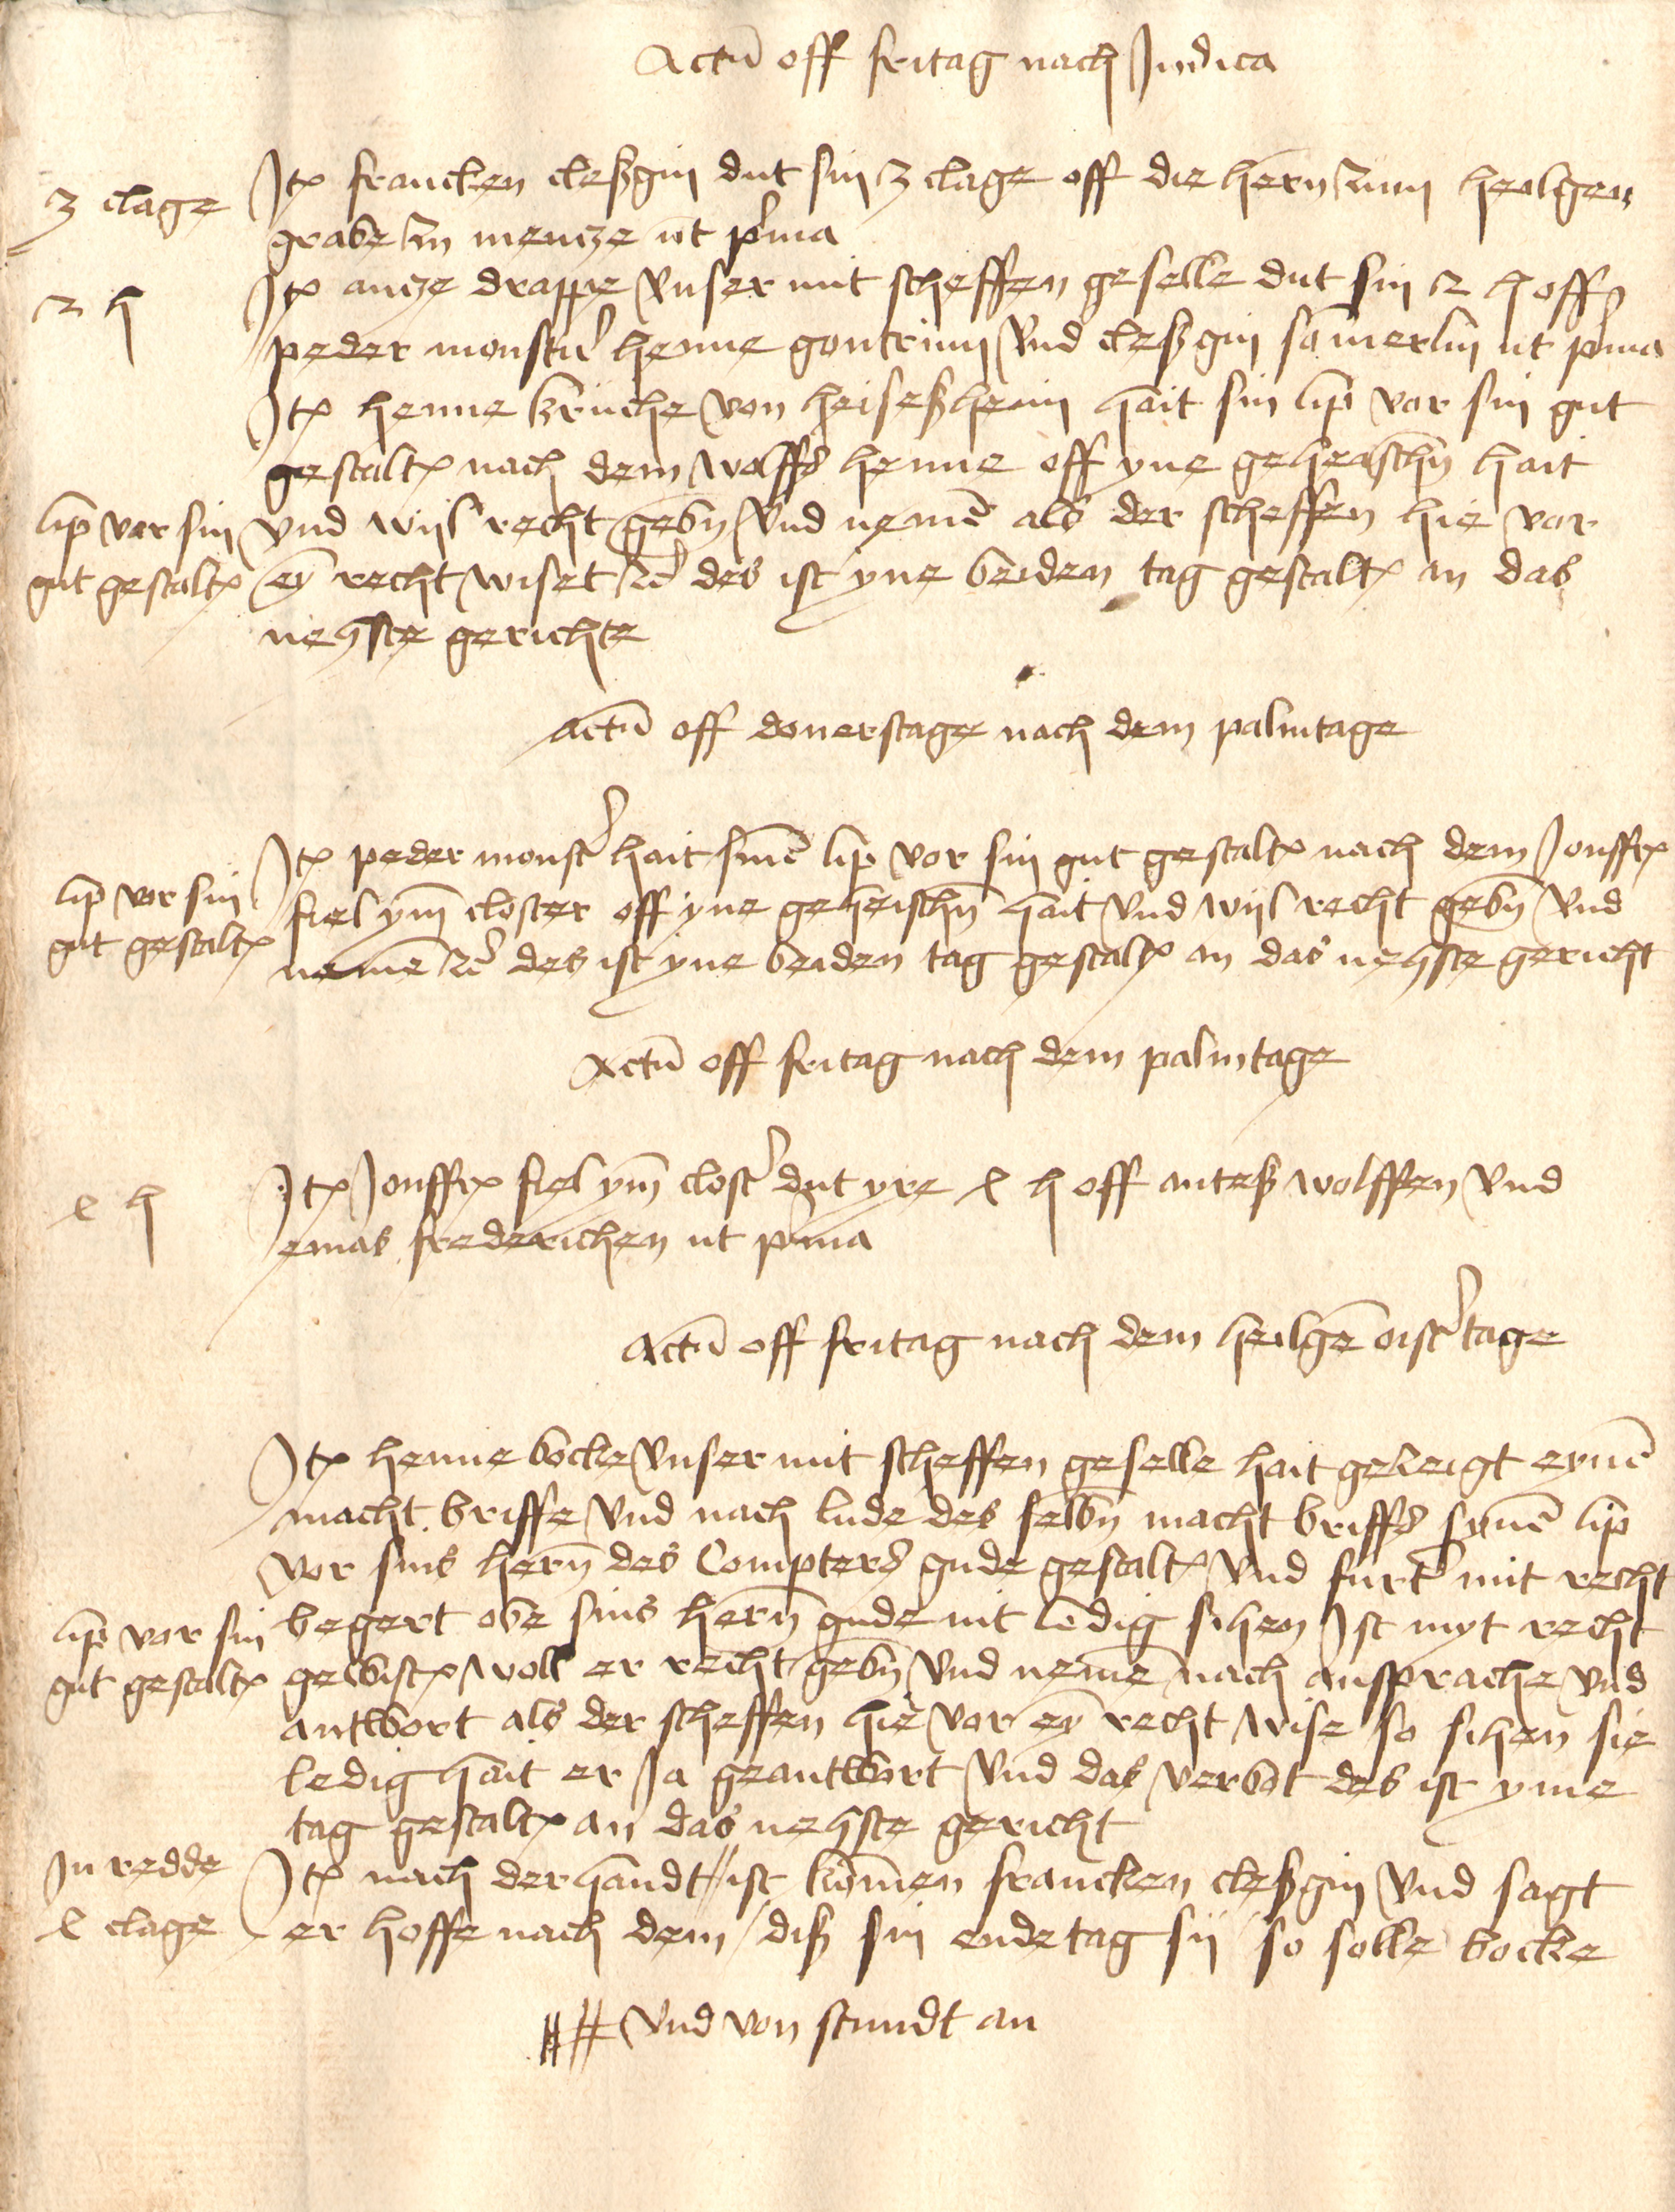 Actu͞ off fritag nach Judica
3 clage
Itꝫ francken cleßgin dut sin 3 clage off die hern zum heilgen
grabe zu mencze ut p͛ma
2 h
Itꝫ ancze drappe vnser mit scheffen geselle dut sin 2 h off
peder monster͛ henne gontrum vnd cleßgin so͞merlin ut p͛ma
Itꝫ henne kruche von heiseßheim hait sin lip vor sin gut
gestaltꝫ nach dem wolffs henne off yne geheischn͞ hait
lip vor sin
gut gestaltꝫ
vnd wijl recht gebn͞ vnd neme͞ als der scheffen hie vor
ey͞ recht wiset ꝛc͛ des ist yne beiden tag gestaltꝫ an das
nehste gerichte
Actu͞ off donerstage nach dem palmtage
lip vor sin
gut gestaltꝫ
Itꝫ peder monst͛ hait sine͞ lip vor sin gut gestaltꝫ nach dem Jonffrꝫ
fiel ym͞ closter off yne geheischn͞ hait vnd wijl recht gebn͞ vnd
neme͞ ꝛc͛ des ist yne beiden tag gestaltꝫ an das nehste gericht
Actu͞ off fritag nach dem palmtage
x h
Itꝫ Jonffrꝫ fiel ym͞ clost͛ dut yre x h off anteß wolffen vnd
emas frederichen ut p͛ma
Actu͞ off fritag nach dem heilge͞ oist͛tage
Itꝫ henne bocke vnser mit scheffen geselle hait gezeigt eyne͞
macht briffe vnd nach lude des selbn͞ macht briffs syne͞ lip
vor sins hern͞ des Compters gude gestaltꝫ vnd furt͛ mit recht
lip vor sin
gut gestaltꝫ
begert obe sins hern͞ gude nit ledig sihen Ist myt recht
gewistꝫ woll er recht gebn͞ vnd neme͞ nach ansprache vnd
antwort als der scheffen hie vor ey͞ recht wise so sihen sie
ledig hait er Ja geantwort vnd das verbot des ist yme
tag gestaltꝫ an das nehste gericht
In redde
x clage
Itꝫ nach der handt // ist ko͞men francken cleßgin vnd sagt
er hoffe nach dem diß sin endetag sij so solle bocke
## vnd von stundt an